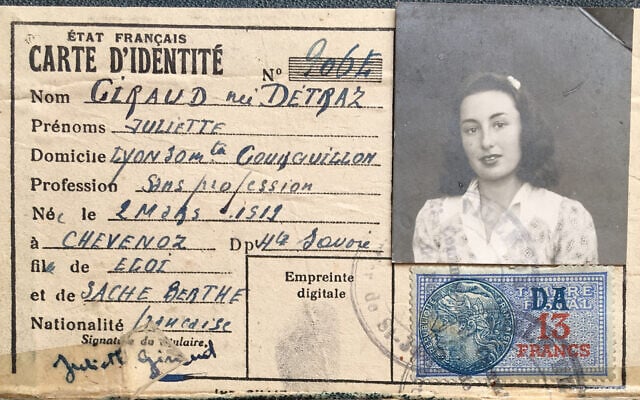 ÉTAT FRANÇAIS
CARTE D'IDENTITÉ
N° 2064
Nom GIRAUD née DÉTRAZ
Prénoms JULIETTE
Domicile LYON 30 mtée Gourguillon
Profession Sans profession
Née le 2 Mars 1912
à CHEVENOZ Dpt Hte Savoie
fille de ELOI
et de SACHE BERTHE
Nationalité française
Signature du titulaire,
Juliette Giraud
Empreinte
digitale
TIMBRE
FISCAL
D.A
13
FRANCS